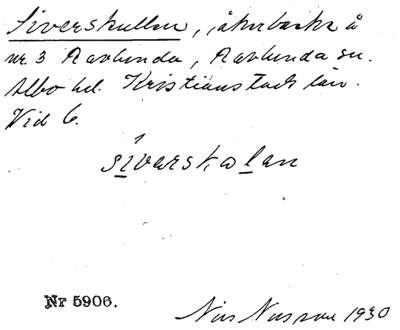 Siverskullen, åkerbacke å
nr 3 Ravlunda, Ravlunda sn.
Albo hd. Kristianstads län.
Vid 6.
sivarskolan
Nr 5906.
Nils Nilsson 1930